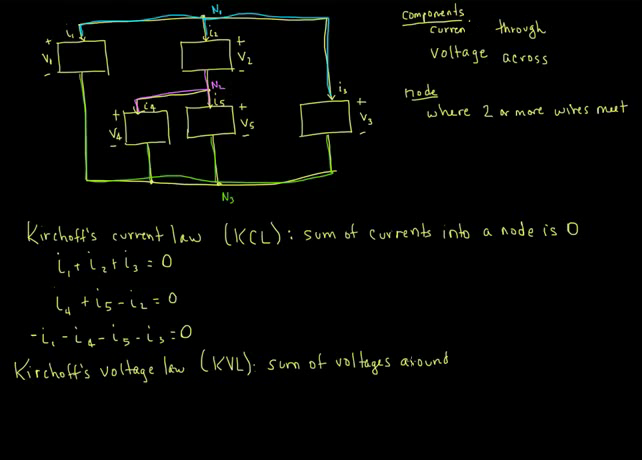 N₁
i₁
i₂
+
V₁
-
+
V₂
-
N₂
i₃
i₄
i₅
+
V₄
-
+
V₅
-
+
V₃
-
N₃
Components
Curren through
Voltage across
node
where 2 or more wires meet
Kirchoff's current law (KCL): sum of currents into a node is 0
i₁ + i₂ + i₃ = 0
i₄ + i₅ - i₂ = 0
-i₁ - i₄ - i₅ - i₃ = 0
Kirchoff's voltage law (KVL): sum of voltages around